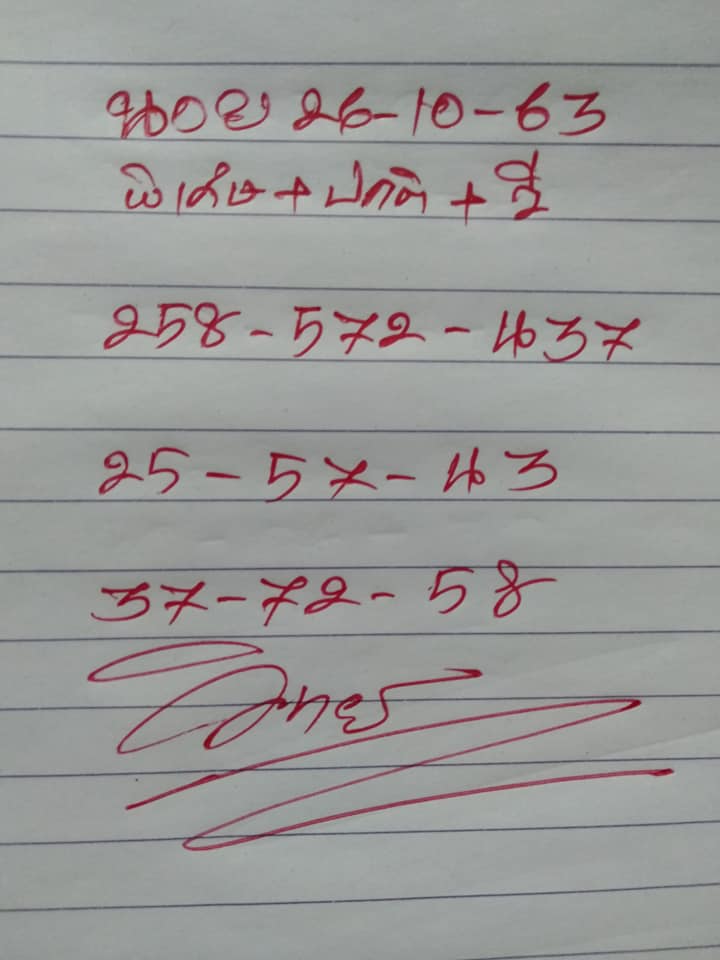 ฮานอย 26-10-63
พิเศษ + ปกติ + วี
258 - 572 - 437
25 - 57 - 43
37 - 72 - 58